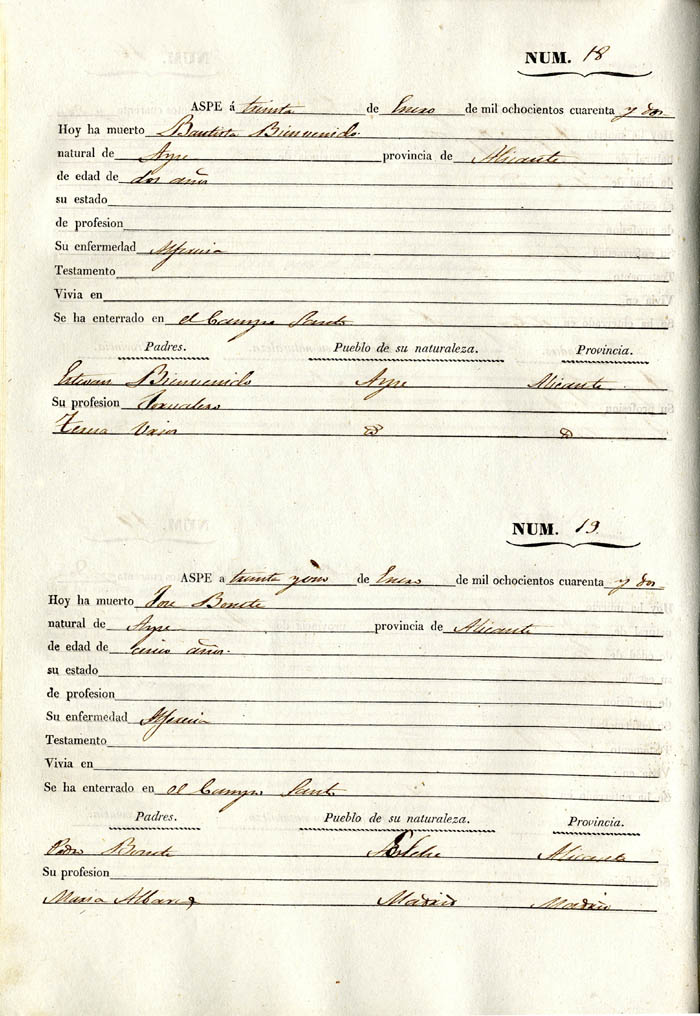 NUM. 18
ASPE á trinta de Enero de mil ochocientos cuarenta y dos
Hoy ha muerto Bautista Bienvenido
natural de Aspe provincia de Alicante
de edad de dos años
su estado
de profesion
Su enfermedad Alferecia
Testamento
Vivia en
Se ha enterrado en el Campo Santo
Padres. Pueblo de su naturaleza. Provincia.
Estevan Bienvenido Aspe Alicante
Su profesion Jornalero
Teresa
NUM. 19
ASPE a trinta y uno de Enero de mil ochocientos cuarenta y dos
Hoy ha muerto Jose Bonete
natural de Aspe provincia de Alicante
de edad de cinco años.
su estado
de profesion
Su enfermedad Alferecia
Testamento
Vivia en
Se ha enterrado en el Campo Santo
Padres. Pueblo de su naturaleza. Provincia.
Pedro Bonete Elche Alicante
Su profesion
Maria Madrid Madrid